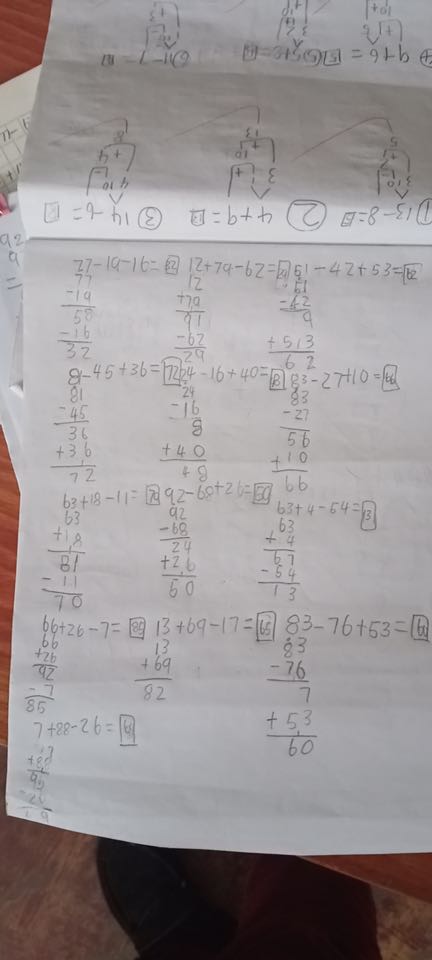 ① 13-8=5 ② 4+9=13 ③ 14-6=8
3 10 3 + 4 10
5 13 8
9+6=15
77-19-16= 12+79-62=29 51-42+53=62
77 12 51
-19 +79 -42
58 91 9
-16 -62 +53
32 29 62
81-45+36=72 24-16+40= 83-27+10=66
81 24 83
-45 -16 -27
36 8 56
+36 +40 +10
72 48 66
63+18-11=70 92-68+26=50 63+4-54=13
63 92 63
+18 -68 +4
81 24 67
-11 +26 -54
70 50 13
66+26-7=85 13+69-17=65 83-76+53=60
66 13 83
+26 +69 -76
92 82 7
-7 +53
85 60
7+88-26=